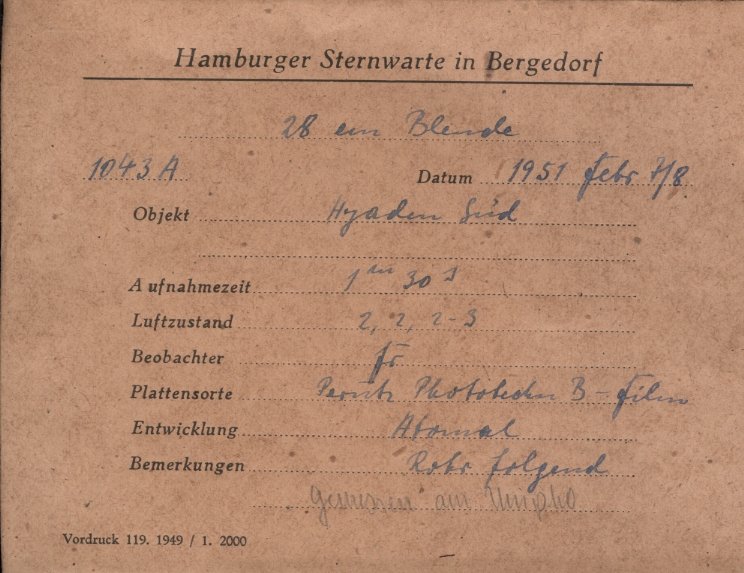 Hamburger Sternwarte in Bergedorf
28 cm Blende
1043 A Datum 1951 Febr 7/8
Objekt Hyaden Süd
Aufnahmezeit 1 m 30 s
Luftzustand 2, 2, 2-3
Beobachter Fr
Plattensorte Perutz Phototechn B-Film
Entwicklung Atomal
Bemerkungen Rohr folgend
Gemessen am
Vordruck 119. 1949 / 1. 2000